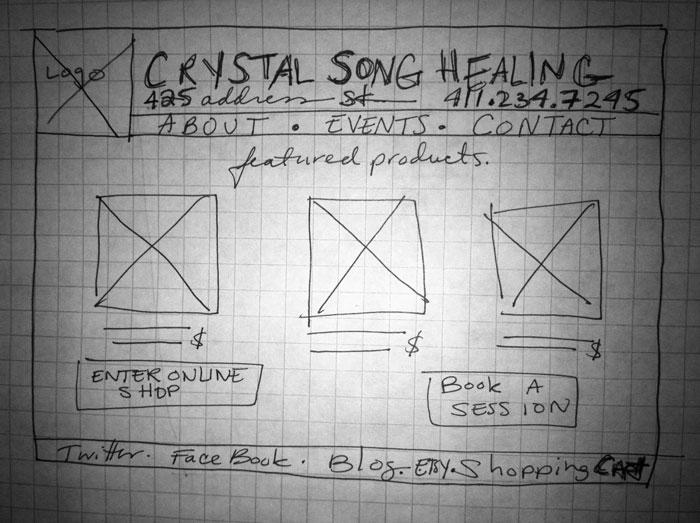 Logo
CRYSTAL SONG HEALING
425 address st 411.234.7245
ABOUT . EVENTS . CONTACT
featured products.
$ $ $
ENTER ONLINE
SHOP
Book A
SESSION
Twitter. FaceBook. Blog. ETSY. Shopping CART